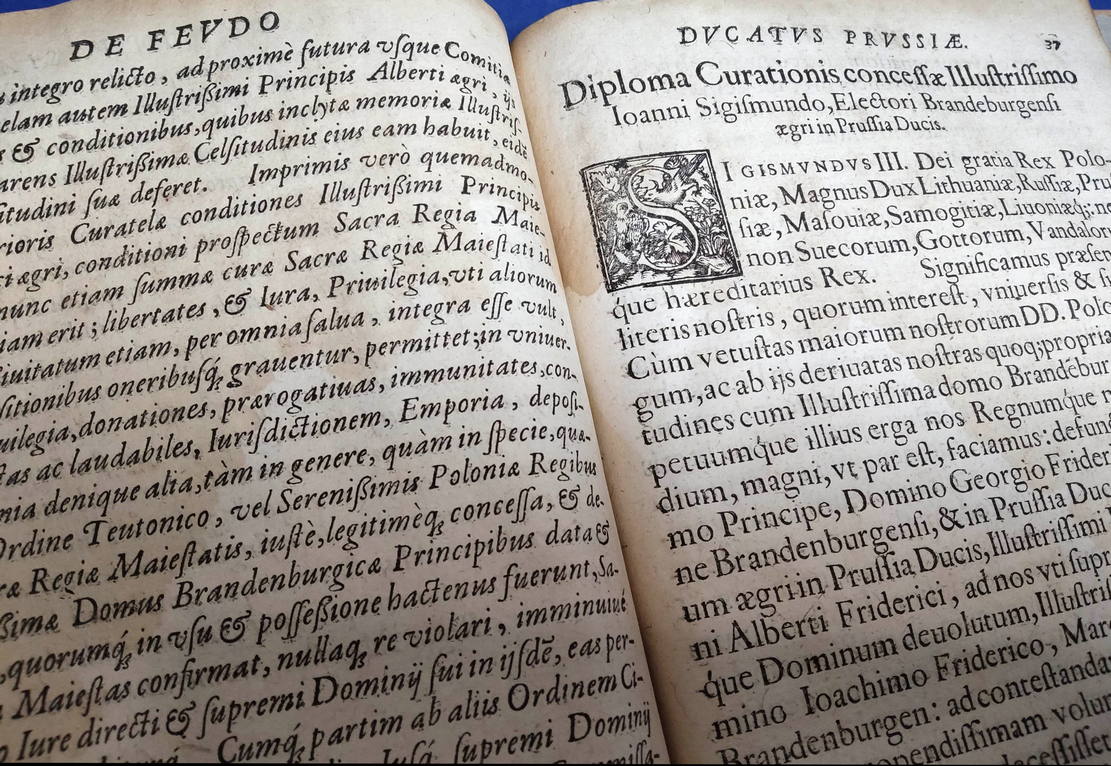 DE FEVDO
integro relicto, ad proximè futura vsque Comitia
elam autem Illustrißimi Principis Alberti ægri, ijs
& conditionibus, quibus inclytæ memoriæ Illustris-
arens Illustrißimæ Celsitudinis eius eam habuit, eidē
itudini suæ deferet. Imprimis verò quemadmo-
rioris Curatelæ conditiones Illustrißimi Principis
ti ægri, conditioni prospectum Sacra Regia Maie-
nunc etiam summæ curæ Sacræ Regiæ Maiestati id
iam erit; libertates, & Iura, Priuilegia, vti aliorum
iuitatum etiam, per omnia salua, integra esse vult,
sitionibus oneribusq́; grauentur, permittet; in vniuer-
uilegia, donationes, prærogatiuas, immunitates, con-
tas ac laudabiles, Iurisdictionem, Emporia, deposi-
nia denique alia, tàm in genere, quàm in specie, quæ-
Ordine Teutonico, vel Serenißimis Poloniæ Regibus
ræ Regiæ Maiestatis, iustè, legitimèq; concessa, & de-
ßimæ Domus Brandenburgicæ Principibus data &
, quorumq́; in vsu & possessione hactenus fuerunt, Sa-
Maiestas confirmat, nullaq; re violari, imminuiué
Iure directi & supremi Dominij sui in ijsdē, eas per-
Cumq́; partim ab aliis Ordinem Ci-
supremi Dominij
DVCATVS PRVSSIÆ. 37
Diploma Curationis concessæ Illustrissimo
Ioanni Sigismundo, Electori Brandeburgensi
ægri in Prussia Ducis.
SIGISMVNDVS III. Dei gratia Rex Polo-
niæ, Magnus Dux Lithuaniæ, Russiæ, Prus
siæ, Masouiæ, Samogitiæ, Liuoniæq́;; ne
non Suecorum, Gottorum, Vandalor
que hæreditarius Rex. Significamus præsen
literis nostris, quorum interest, vniuersis & si
Cùm vetustas maiorum nostrorum DD. Polo
gum, ac ab ijs deriuatas nostras quoq; propria
tudines cum Illustrissima domo Brandebur
petuumque illius erga nos Regnumque n
dium, magni, vt par est, faciamus: defun
mo Principe, Domino Georgio Frider
ne Brandenburgensi, & in Prussia Duc
um ægri in Prussia Ducis, Illustrissimi
ni Alberti Friderici, ad nos vti supr
que Dominum deuolutum, Illustris
mino Ioachimo Friderico, Marc
Brandenburgen: ad contestanda
pendissimam volun